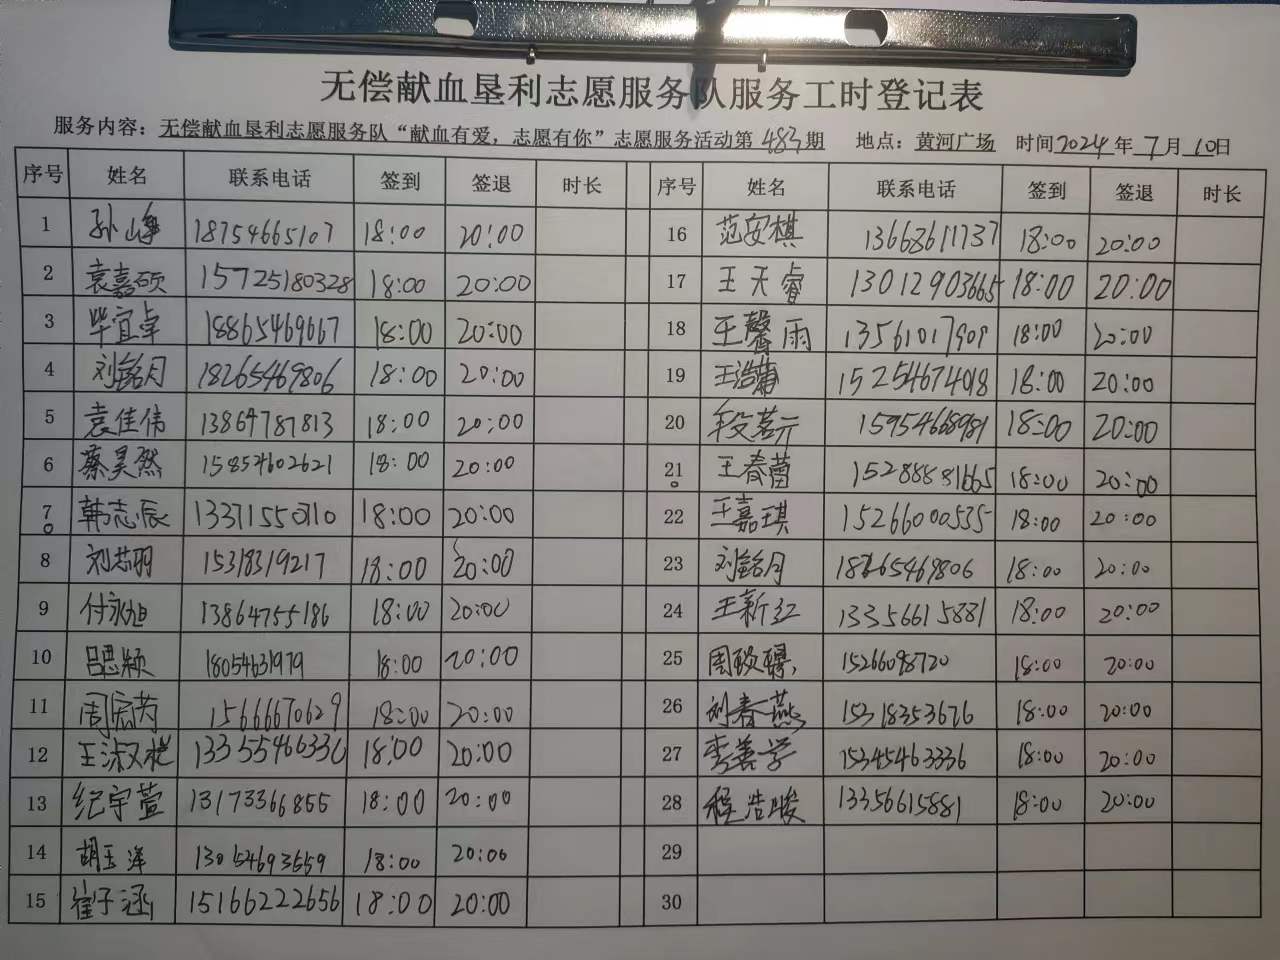 无偿献血垦利志愿服务队服务工时登记表
服务内容：无偿献血垦利志愿服务队“献血有爱，志愿有你”志愿服务活动第 483 期 地点：黄河广场 时间2024年7月10日
序号 姓名 联系电话 签到 签退 时长 序号 姓名 联系电话 签到 签退 时长
1 孙峰 18754665107 18:00 20:00 16 范安棋 13668611737 18:00 20:00
2 袁嘉硕 15725180328 18:00 20:00 17 王天睿 13012903665 18:00 20:00
3 毕宜卓 18865469667 18:00 20:00 18 王馨雨 13561017909 18:00 20:00
4 刘铭月 18265469806 18:00 20:00 19 王浩 15254674018 18:00 20:00
5 袁佳伟 13864787813 18:00 20:00 20 段茗亓 15954668981 18:00 20:00
6 蔡昊然 15854602621 18:00 20:00 21 王春蕾 15288881665 18:00 20:00
7 韩志辰 13371550310 18:00 20:00 22 王嘉琪 15266000535 18:00 20:00
8 刘芯羽 15318319217 18:00 20:00 23 刘铭月 18265469806 18:00 20:00
9 付永旭 13864755186 18:00 20:00 24 王新红 13356615881 18:00 20:00
10 吕思颖 18054631979 18:00 20:00 25 周 15266098720 18:00 20:00
11 周宏芮 15666670629 18:00 20:00 26 刘春燕 15318353676 18:00 20:00
12 王淑 13355466336 18:00 20:00 27 李善学 15345463336 18:00 20:00
13 纪宇萱 13173366855 18:00 20:00 28 程浩峻 13356615881 18:00 20:00
14 胡玉洋 13054693659 18:00 20:00 29
15 崔子涵 15166222656 18:00 20:00 30